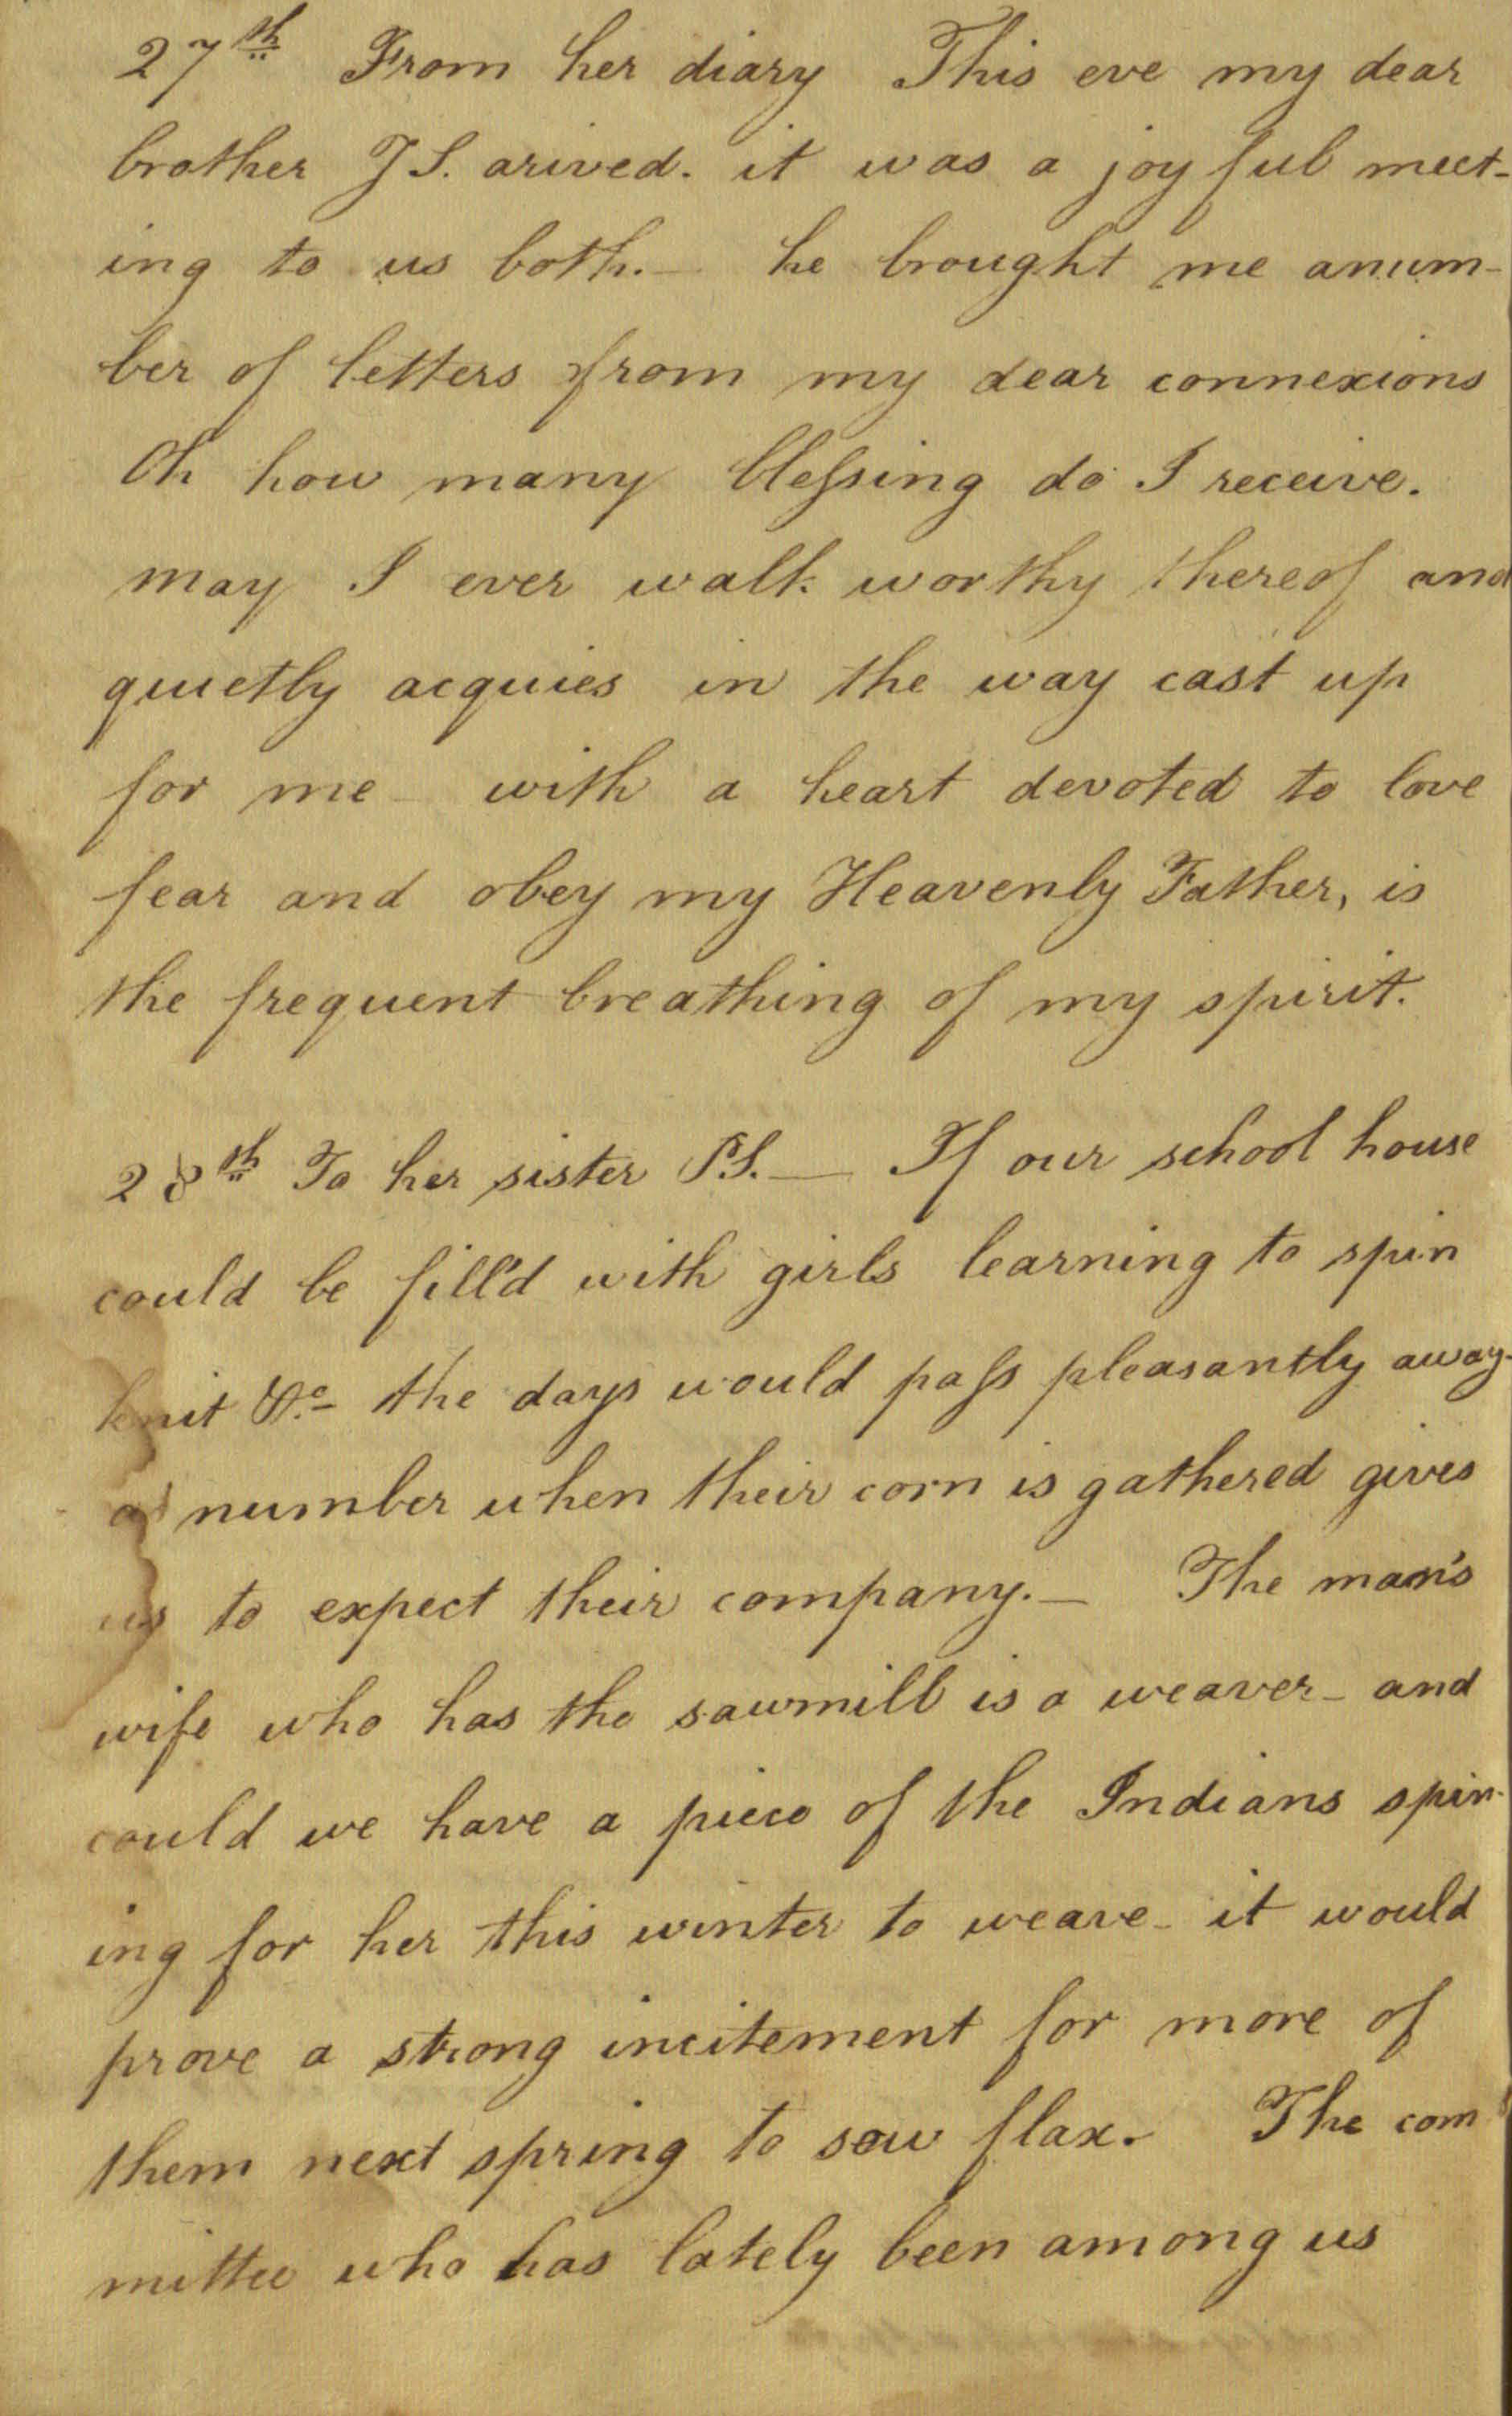 27th From her diary This eve my dear
brother J S. arived. it was a joyful meet-
ing to us both. — he brought me anum-
ber of letters from my dear connexions
Oh how many blessing do I receive.
may I ever walk worthy thereof and
quietly acquies in the way cast up
for me - with a heart devoted to love
fear and obey my Heavenly Father, is
the frequent breathing of my spirit.
28th To her sister P.S. — If our school house
could be fill'd with girls learning to spin
knit &c. - the days would pass pleasantly away -
a number when their corn is gathered gives
us to expect their company. — The man's
wife who has the sawmill is a weaver - and
could we have a piece of the Indians spin-
ing for her this winter to weave - it would
prove a strong incitement for more of
them next spring to sow flax. The com
mittee who has lately been among us